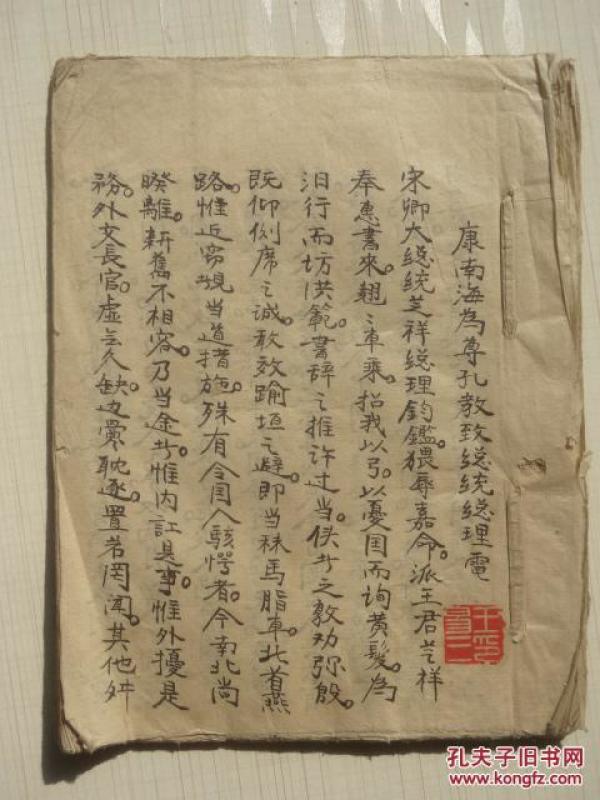 康南海為尊孔教致總統總理電
宋卿大總統芝祥總理鈞鑑。猥辱嘉命。派王君芝祥
奉惠書來。翹翹車乘。招我以弓。以憂国而詢黄髮。為
汨行而坊洪範。書辞之推許过当。使者之敦劝弥殷。
既仰側席之誠。敢效踰垣之避。即当秣馬脂車。北首燕
路。惟近窃覘当道措施。殊有令人駭愕者。今南北尚
暌離。新舊不相容。乃当途者。惟内訌是事。惟外擾是
務。外交長官。虚懸久缺。边
耽逐。置若罔闻。其他舛
孔夫子旧书网
www.kongfz.com